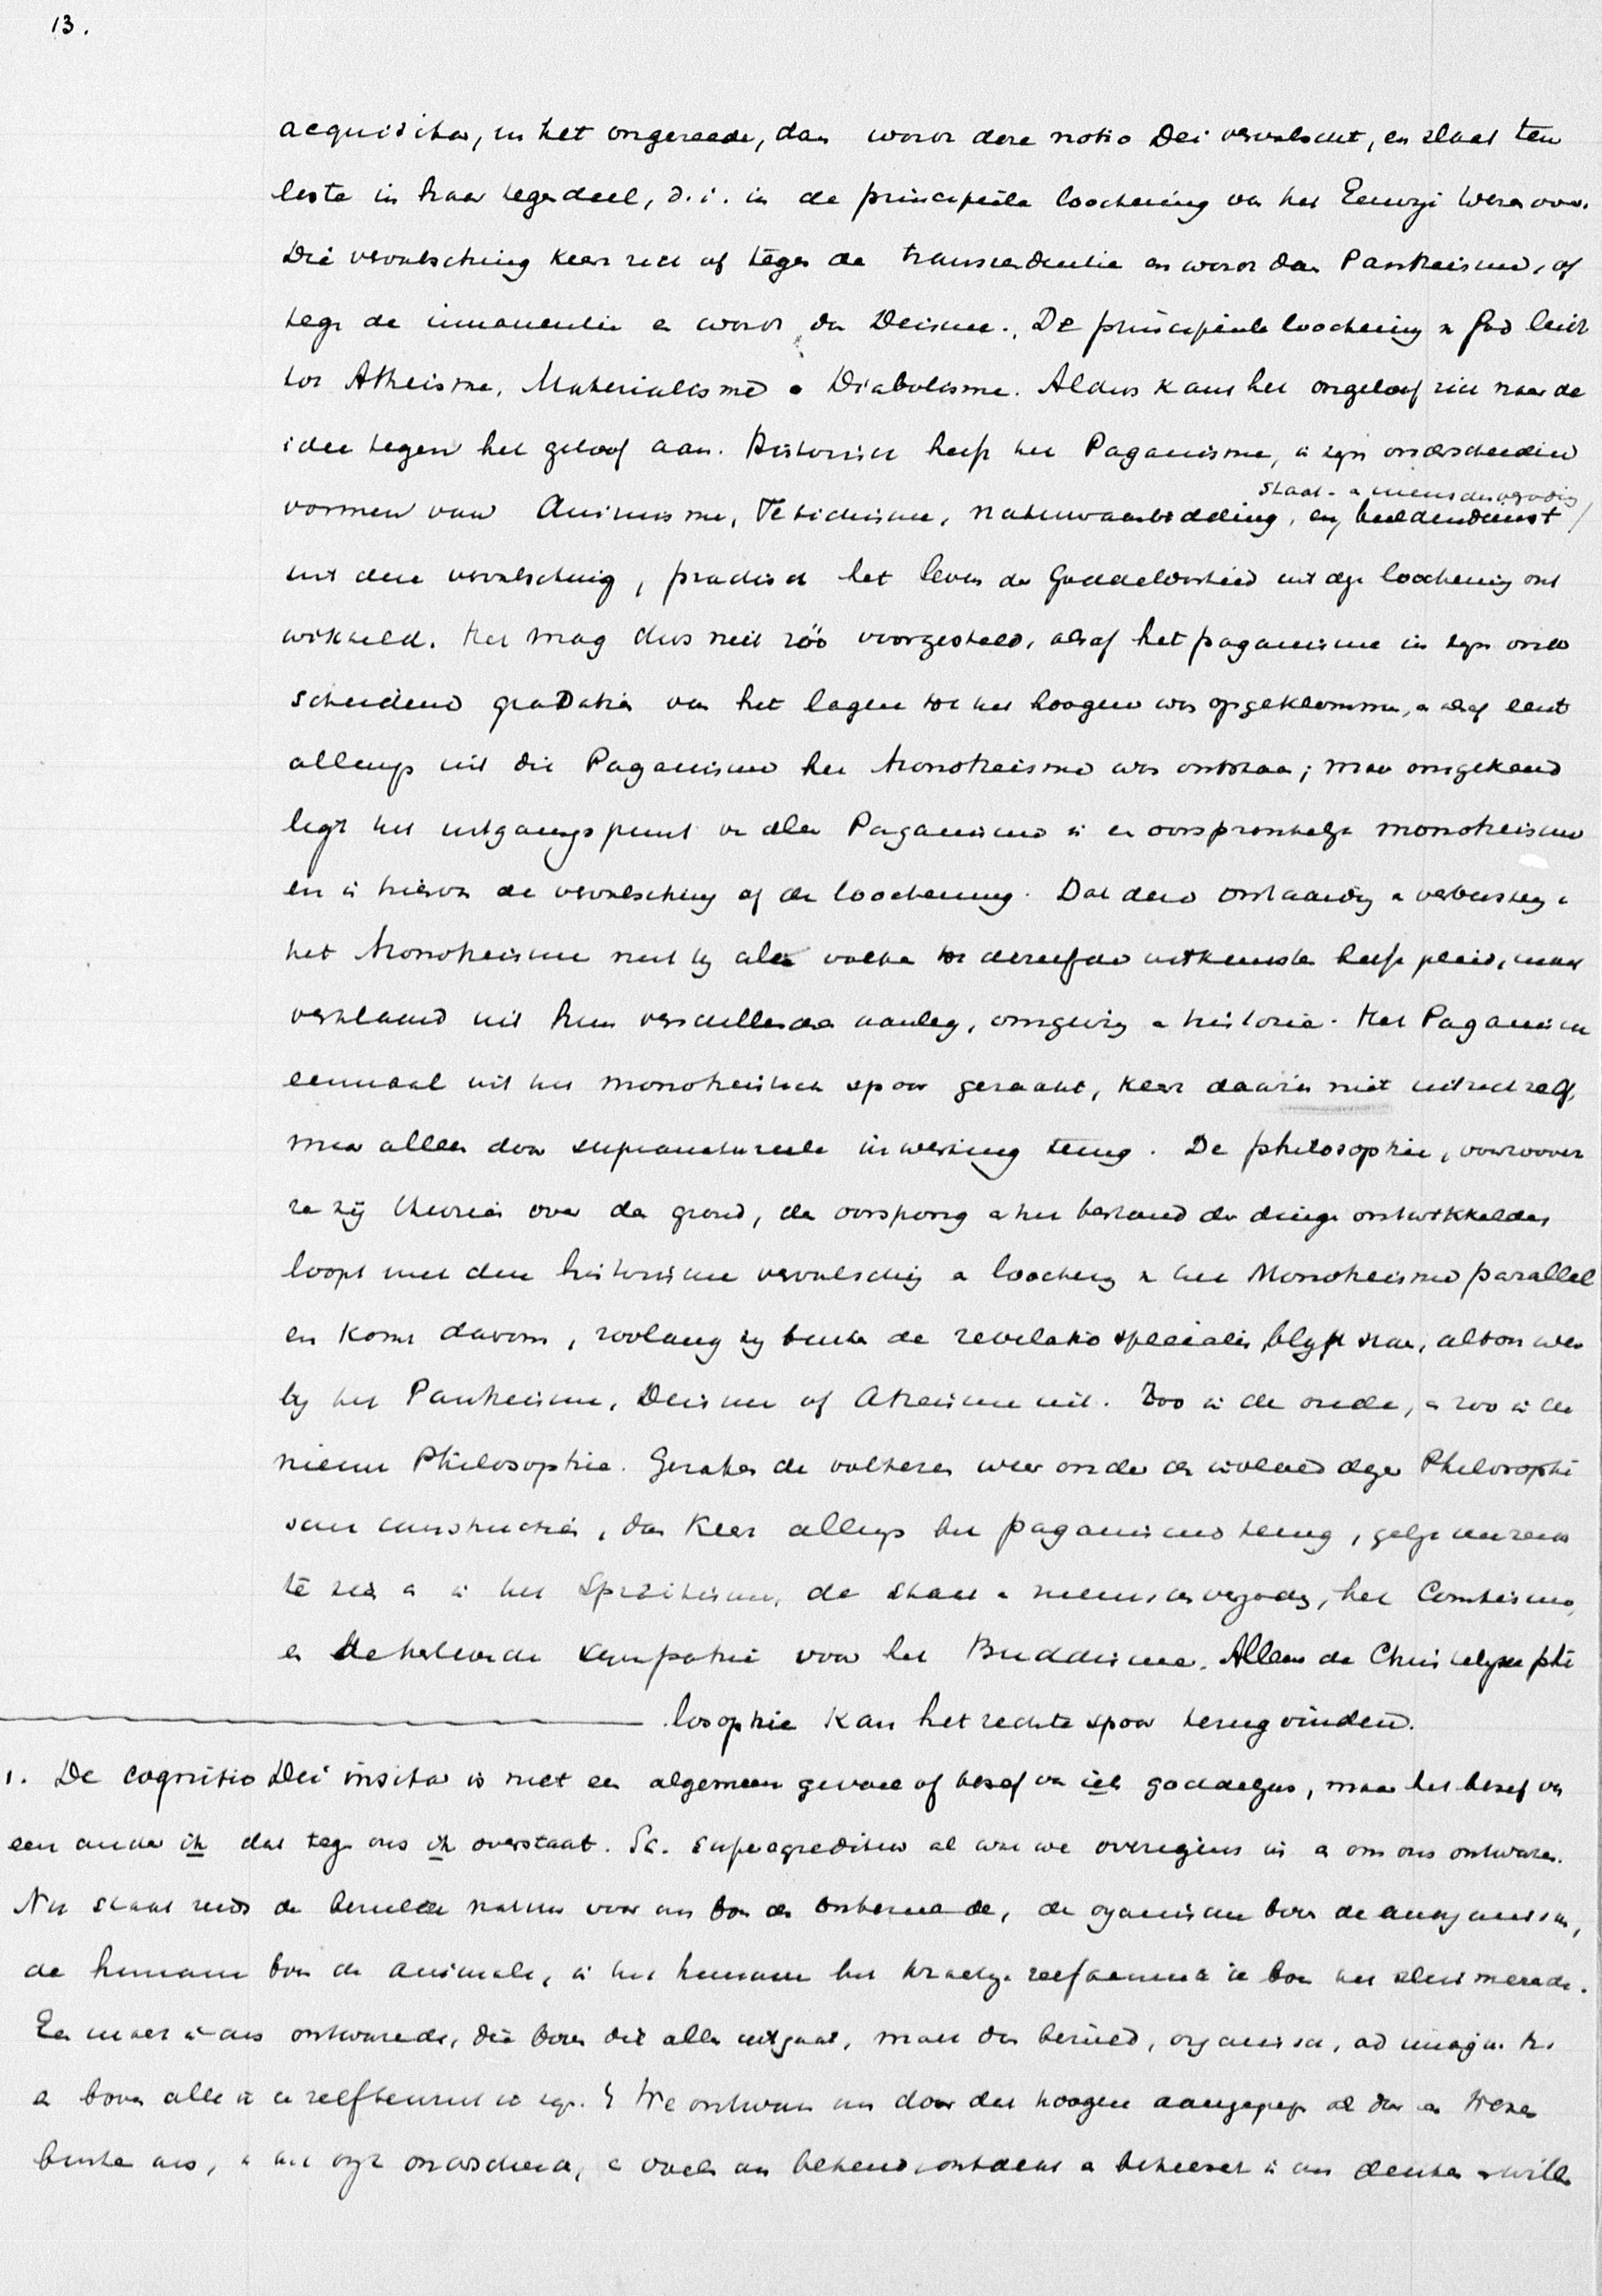 13.
acquisita, in het ongereede, dan word deze notio Dei vervalscht, en slaat ten
leste in haar tegendeel, d.i. in de principiëele loochening van het Eeuwige Wezen over.
Die vervalsching keert zich of tegen de transcendentie en wordt dan Pantheisme, of
tegen de immanentie en wordt dan Deisme. De principiëele loochening van God leidt
tot Atheisme, Materialisme of Diabolisme. Aldus kant het ongeloof zich naar de
idee tegen het geloof aan. Historisch heeft het Paganisme, in zijn onderscheidene
staat- en menschvergoding
vormen van Animisme, Fetichisme, natuuraanbidding, en beeldendienst /
uit deze vervalsching, practisch het leven der Goddeloosheid uit deze loochening ont
wikkeld. Het mag dus niet zóó voorgesteld, alsof het paganisme in zijn onder
scheidene gradatiën van het lagere tot het hoogere was opgeklommen, en alsof eerst
allengs uit dit Paganisme het Monotheisme was ontstaan; maar omgekeerd
ligt het uitgangspunt van alle Paganisme in een oorspronkelijk monotheisme
en in hiervan de vervalsching of de loochening. Dat deze ontaarding en verbastering van
het Monotheisme niet bij alle volken tot dezelfde uitkomsten heeft geleid, maar
verklaard uit hun verschillenden aanleg, omgeving en historie. Het Paganisme
eenmaal uit het monotheistisch spoor geraakt, keert daarin niet uit zich zelf,
maar alleen door supranatureele inwerking terug. De philosophie, voorzoover
ze zij theoriën over de grond, de oorsprong en het bestand der dingen ontwikkelde,
loopt met deze historische vervalsching en loochening van het Monotheisme parallel
en komt daarom, zoolang zij buiten de revelatio specialis blijft staan, altoos weer
bij het Pantheisme, Deisme of Atheisme uit. Zoo in de oude, en zoo in de
nieuwe Philosophie. Geraken de volkeren weer onder den invloed dezer Philosophi
sche constructiën, dan keert allengs het paganisme terug, gelijk nu reeds
te zien is in het Spiritisme, de staat en menschenvergoding, het Comtisme,
en de heerschende sympathie voor het Buddisme. Alleen de Christelijke phi
losophie kan het rechte spoor terugvinden.
1. De cognitio Dei insita is niet een algemeen gevoel of besef van iets goddelijks, maar het besef van
een ander ik dat tegen ons ik overstaat. Sc. supragreditur al wat we overigens in en om ons ontwaren.
Nu staat reeds de bezielde natuur voor ons boven de onbezielde, de organische boven de anorganische,
de humane boven de animale, in het humane het krachtige zelfbewuste ik boven het sluimerende.
Een macht in ons ontwarende, die boven dit alles uitgaat, moet dus bezield, organisch, ad imaginem h.
en boven alles in een zelfbewust ik zijn. § We ontwaren ons door dat hoogere aangegrepen als door een Wezen
buiten ons, van het onze onderscheiden, en voelen ons bekend ontdekt en beheerscht in ons denken en willen